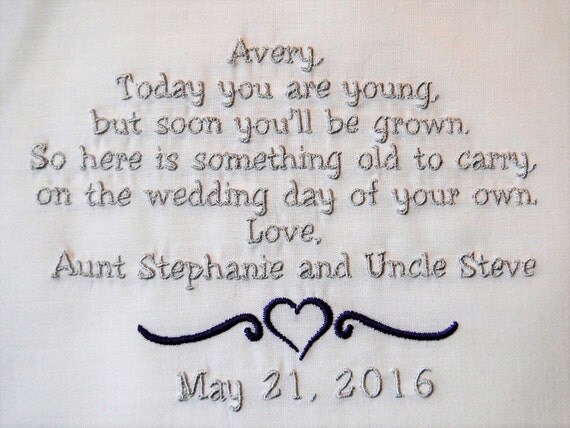 Avery,
Today you are young,
but soon you'll be grown.
So here is something old to carry,
on the wedding day of your own.
Love,
Aunt Stephanie and Uncle Steve
May 21, 2016